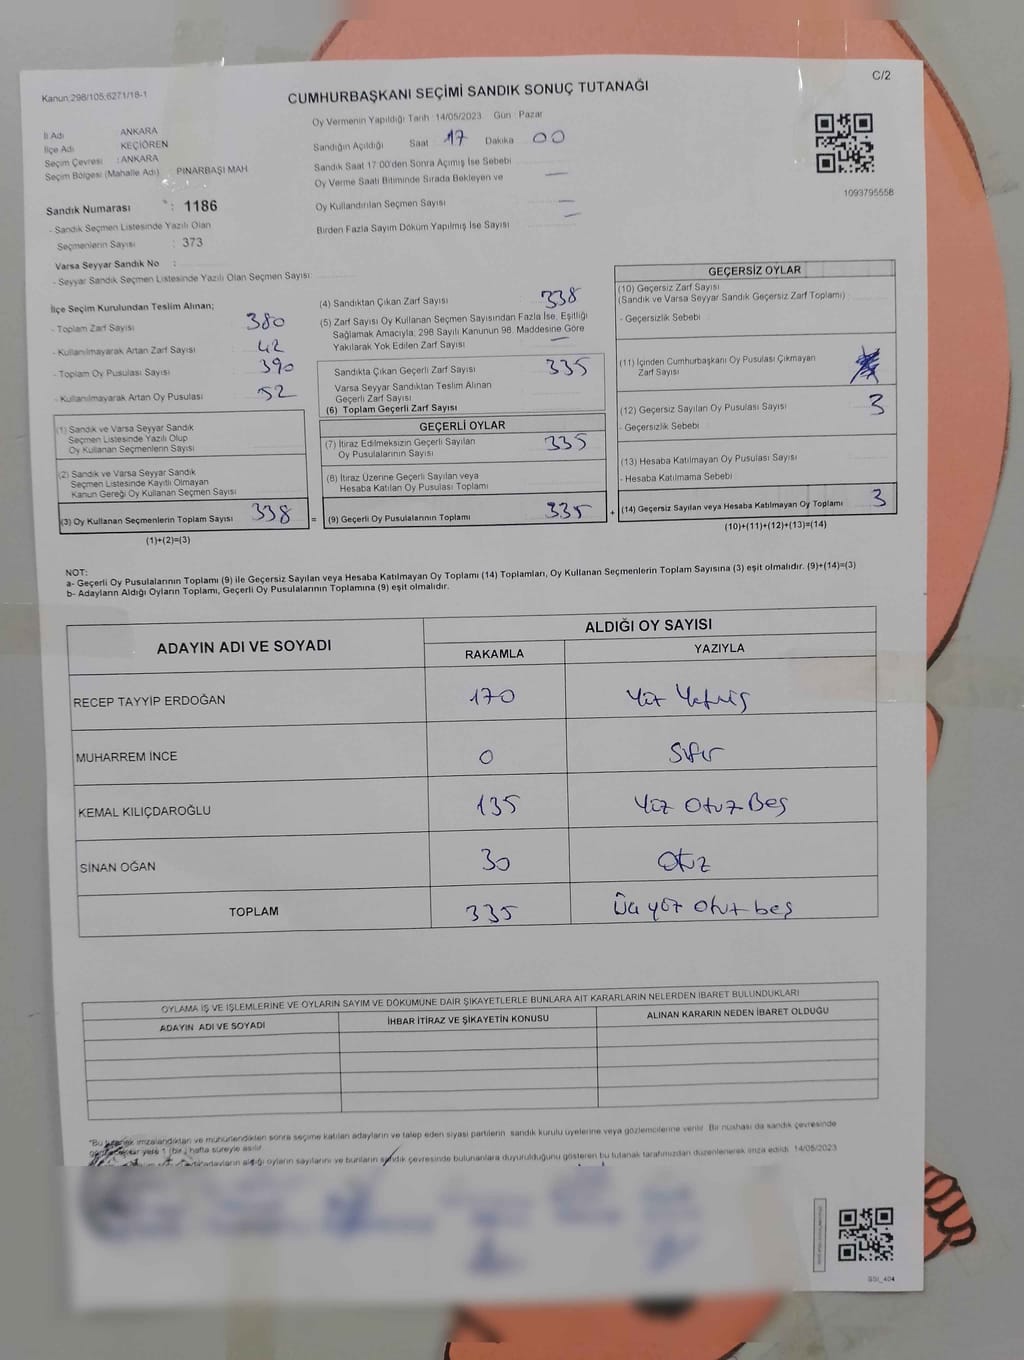 C/2
Kanun:298/105;6271/18-1
CUMHURBAŞKANI SEÇİMİ SANDIK SONUÇ TUTANAĞI
Oy Vermenin Yapıldığı Tarih :14/05/2023 Gün : Pazar
İl Adı ANKARA
İlçe Adı KEÇİÖREN
Seçim Çevresi : ANKARA
Seçim Bölgesi (Mahalle Adı) PINARBAŞI MAH
Sandık Numarası : 1186
- Sandık Seçmen Listesinde Yazılı Olan
Seçmenlerin Sayısı : 373
Varsa Seyyar Sandık No :
- Seyyar Sandık Seçmen Listesinde Yazılı Olan Seçmen Sayısı:
Sandığın Açıldığı Saat 17 Dakika 00
Sandık Saat 17:00'den Sonra Açımış İse Sebebi
Oy Verme Saati Bitiminde Sırada Bekleyen ve —
Oy Kullandırılan Seçmen Sayısı —
Birden Fazla Sayım Döküm Yapılmış İse Sayısı —
1093795558
İlçe Seçim Kurulundan Teslim Alınan;
- Toplam Zarf Sayısı 380
- Kullanılmayarak Artan Zarf Sayısı 42
- Toplam Oy Pusulası Sayısı 390
- Kullanılmayarak Artan Oy Pusulası 52
(1) Sandık ve Varsa Seyyar Sandık
Seçmen Listesinde Yazılı Olup
Oy Kullanan Seçmenlerin Sayısı
(2) Sandık ve Varsa Seyyar Sandık
Seçmen Listesinde Kayıtlı Olmayan
Kanun Gereği Oy Kullanan Seçmen Sayısı
(3) Oy Kullanan Seçmenlerin Toplam Sayısı 338 =
(1)+(2)=(3)
(4) Sandıktan Çıkan Zarf Sayısı 338
(5) Zarf Sayısı Oy Kullanan Seçmen Sayısından Fazla İse, Eşitliği
Sağlamak Amacıyla; 298 Sayılı Kanunun 98. Maddesine Göre
Yakılarak Yok Edilen Zarf Sayısı —
Sandıkta Çıkan Geçerli Zarf Sayısı 335
Varsa Seyyar Sandıktan Teslim Alınan
Geçerli Zarf Sayısı
(6) Toplam Geçerli Zarf Sayısı
GEÇERLİ OYLAR
(7) İtiraz Edilmeksizin Geçerli Sayılan 335
Oy Pusulasının Sayısı
(8) İtiraz Üzerine Geçerli Sayılan veya
Hesaba Katılan Oy Pusulası Toplamı
(9) Geçerli Oy Pusulalarının Toplamı 335 +
GEÇERSİZ OYLAR
(10) Geçersiz Zarf Sayısı
(Sandık ve Varsa Seyyar Sandık Geçersiz Zarf Toplamı)
- Geçersizlik Sebebi
(11) İçinden Cumhurbaşkanı Oy Pusulası Çıkmayan
Zarf Sayısı
(12) Geçersiz Sayılan Oy Pusulası Sayısı 3
- Geçersizlik Sebebi
(13) Hesaba Katılmayan Oy Pusulası Sayısı
- Hesaba Katılmama Sebebi
(14) Geçersiz Sayılan veya Hesaba Katılmayan Oy Toplamı 3
(10)+(11)+(12)+(13)=(14)
NOT:
a- Geçerli Oy Pusulalarının Toplamı (9) ile Geçersiz Sayılan veya Hesaba Katılmayan Oy Toplamı (14) Toplamları, Oy Kullanan Seçmenlerin Toplam Sayısına (3) eşit olmalıdır. (9)+(14)=(3)
b- Adayların Aldığı Oyların Toplamı, Geçerli Oy Pusulalarının Toplamına (9) eşit olmalıdır.
ADAYIN ADI VE SOYADI ALDIĞI OY SAYISI
RAKAMLA YAZIYLA
RECEP TAYYİP ERDOĞAN 170 Yüz Yetmiş
MUHARREM İNCE 0 Sıfır
KEMAL KILIÇDAROĞLU 135 Yüz Otuz Beş
SİNAN OĞAN 30 Otuz
TOPLAM 335 Üç yüz Otuz beş
OYLAMA İŞ VE İŞLEMLERİNE VE OYLARIN SAYIM VE DÖKÜMÜNE DAİR ŞİKAYETLERLE BUNLARA AİT KARARLARIN NELERDEN İBARET BULUNDUKLARI
ADAYIN ADI VE SOYADI İHBAR İTİRAZ VE ŞİKAYETİN KONUSU ALINAN KARARIN NEDEN İBARET OLDUĞU
*Bu tutanak imzalandıktan ve mühürlendikten sonra seçime katılan adayların ve talep eden siyasi partilerin sandık kurulu üyelerine veya gözlemcilerine verilir. Bir nüshası da sandık çevresinde
yere 1 (bir) hafta süreyle asılır.
adayların aldığı oyların sayılarını ve bunların sandık çevresinde bulunanlara duyurulduğunu gösteren bu tutanak tarafımızdan düzenlenerek imza edildi. 14/05/2023
GSI_404